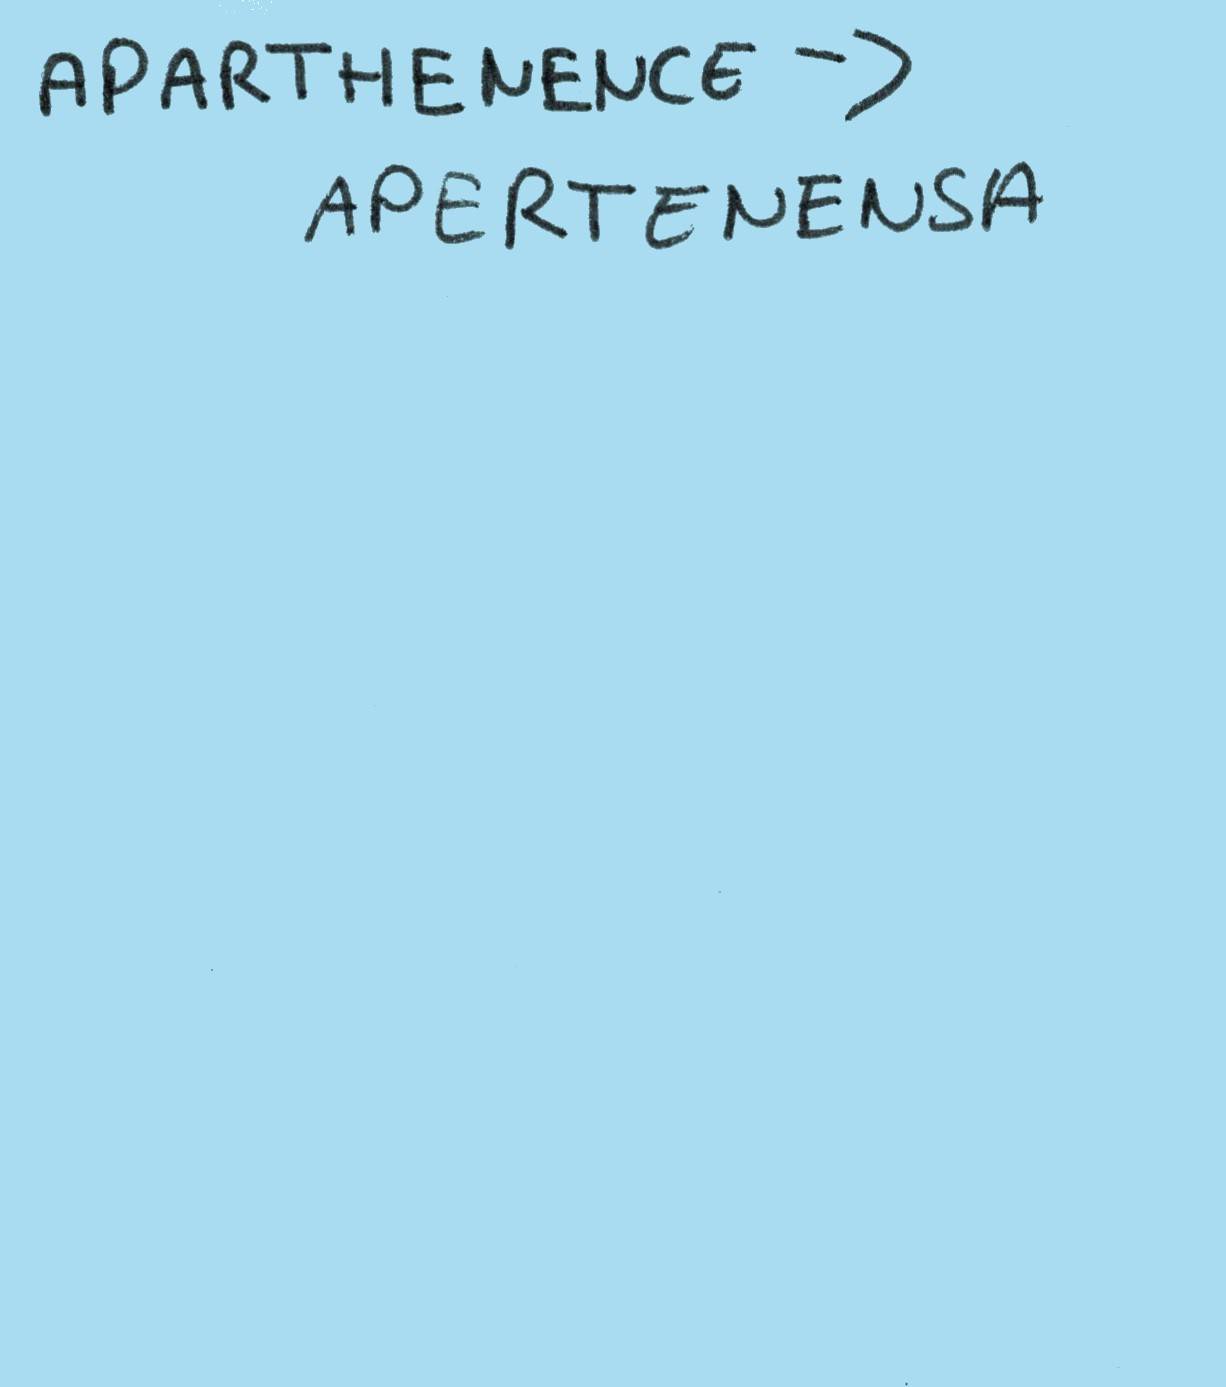 APARTHENENCE ->
APERTENENSA